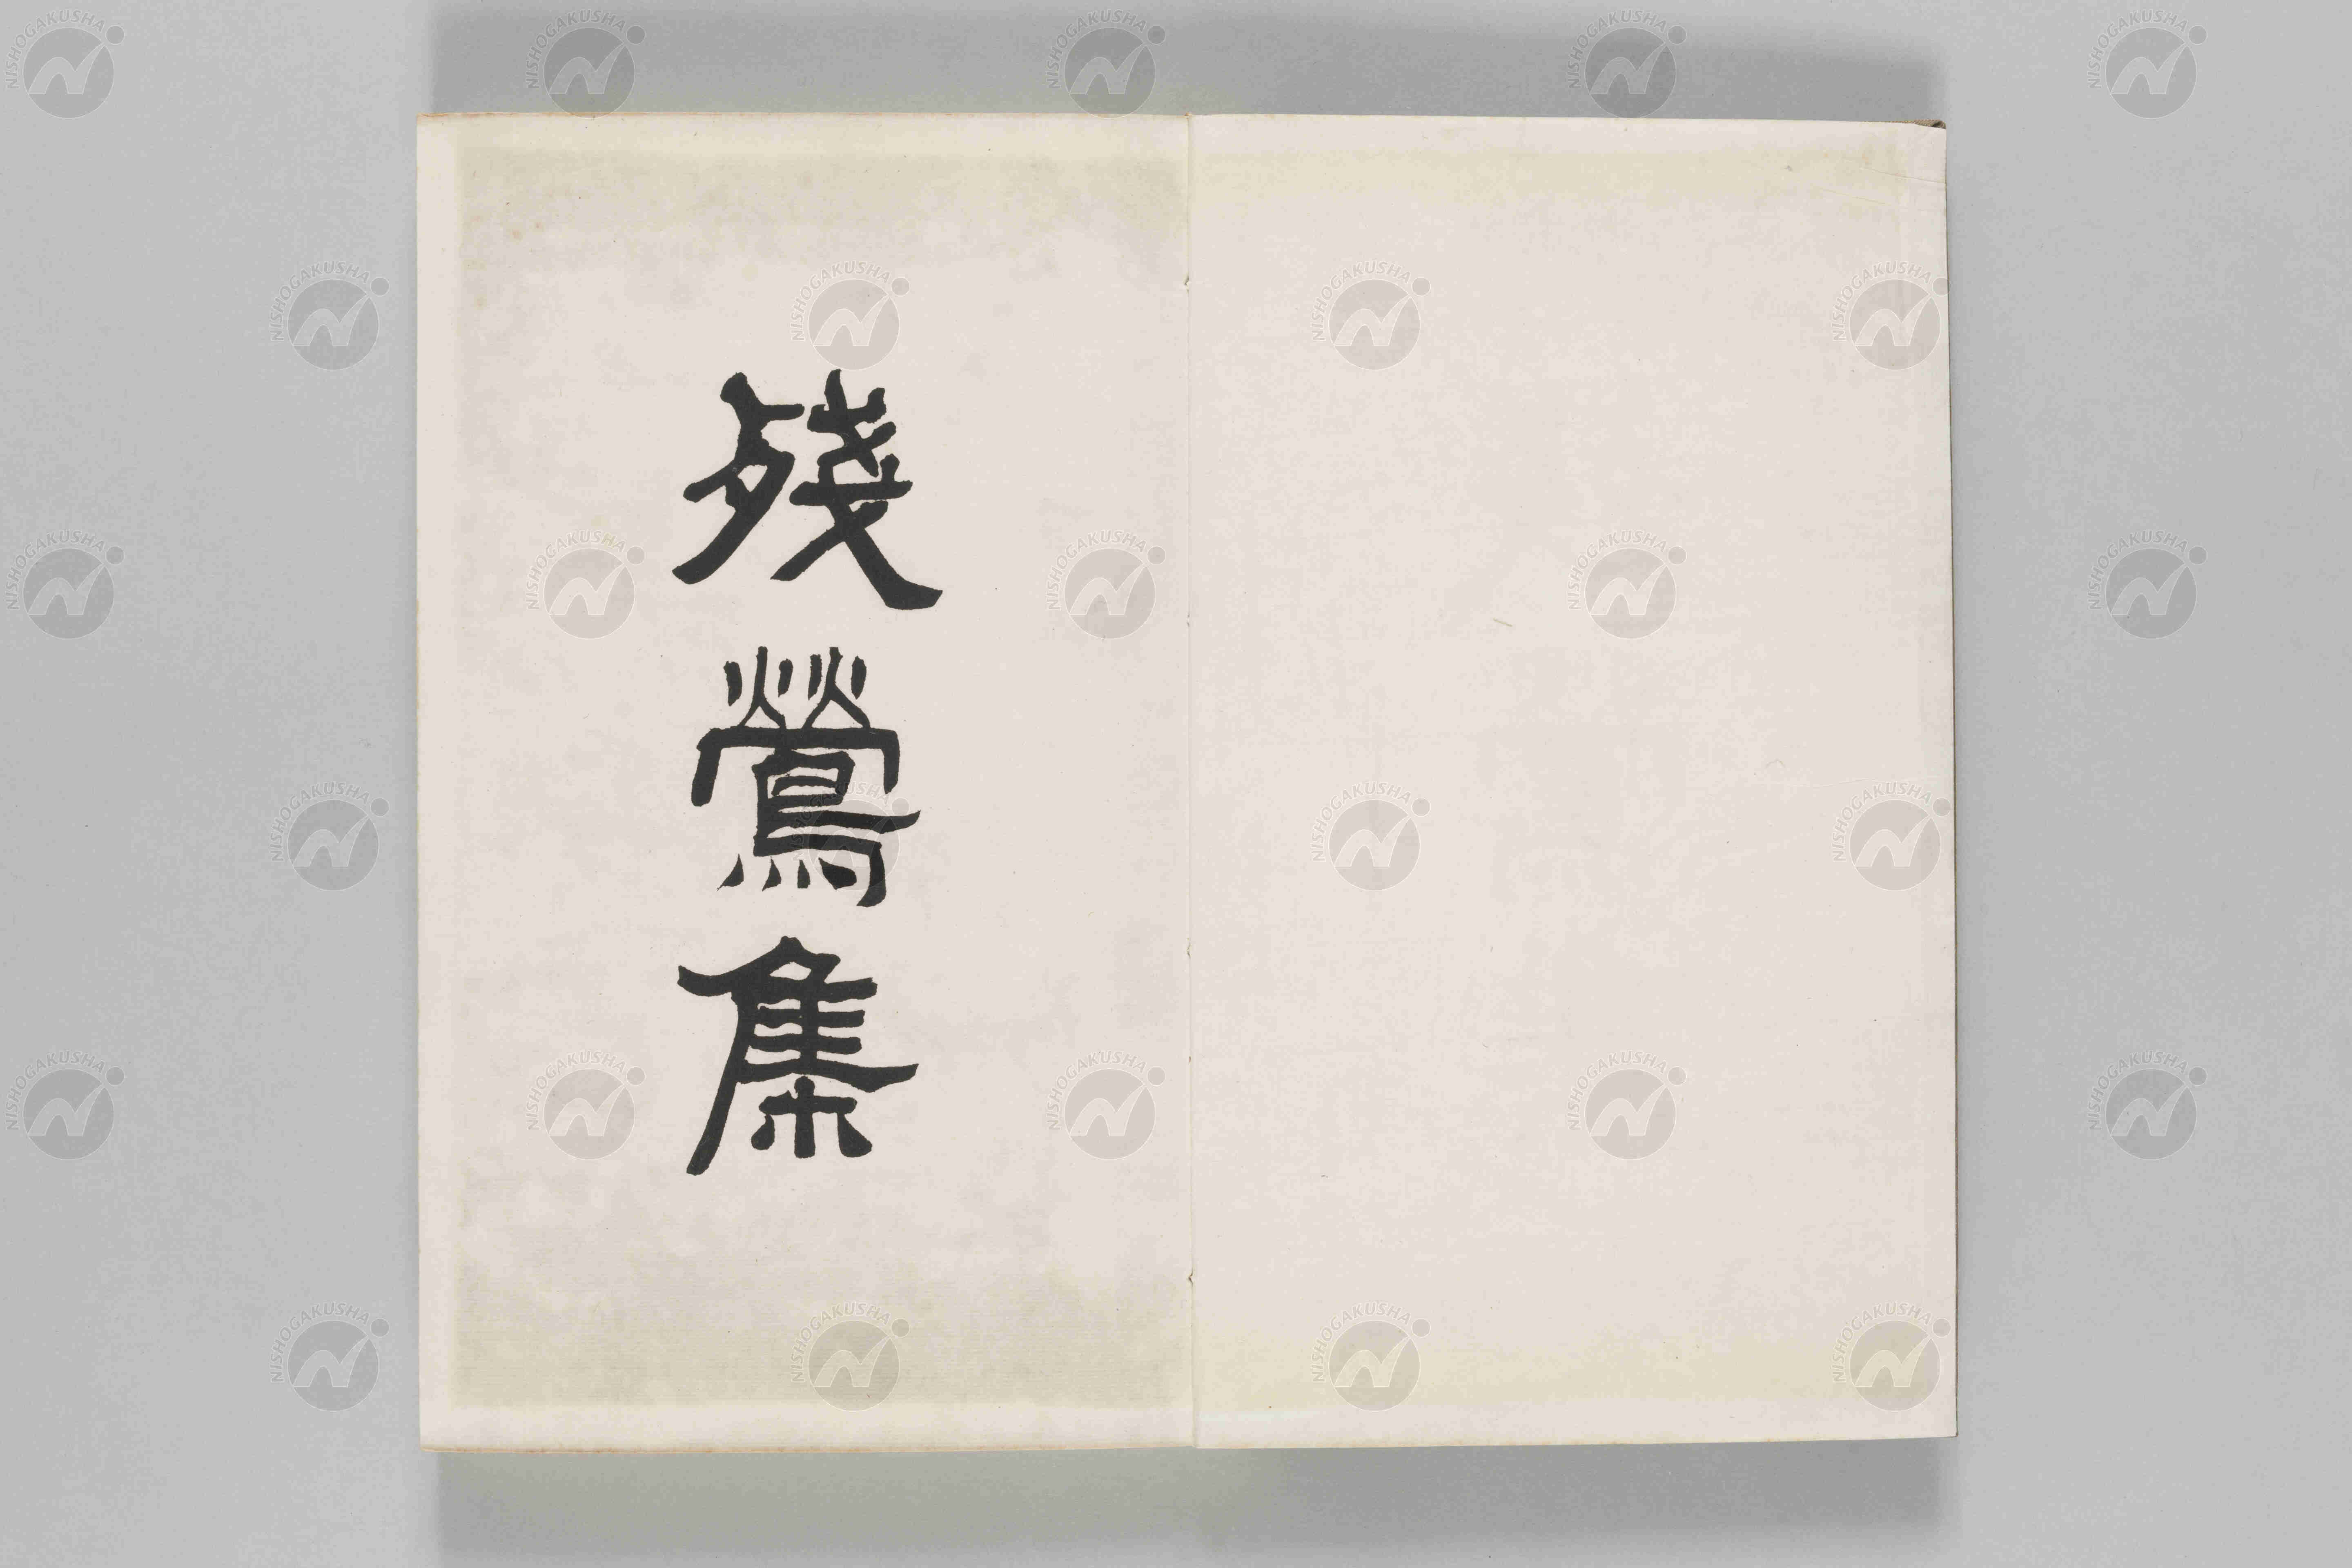 殘鶯集
NISHOGAKUSHA